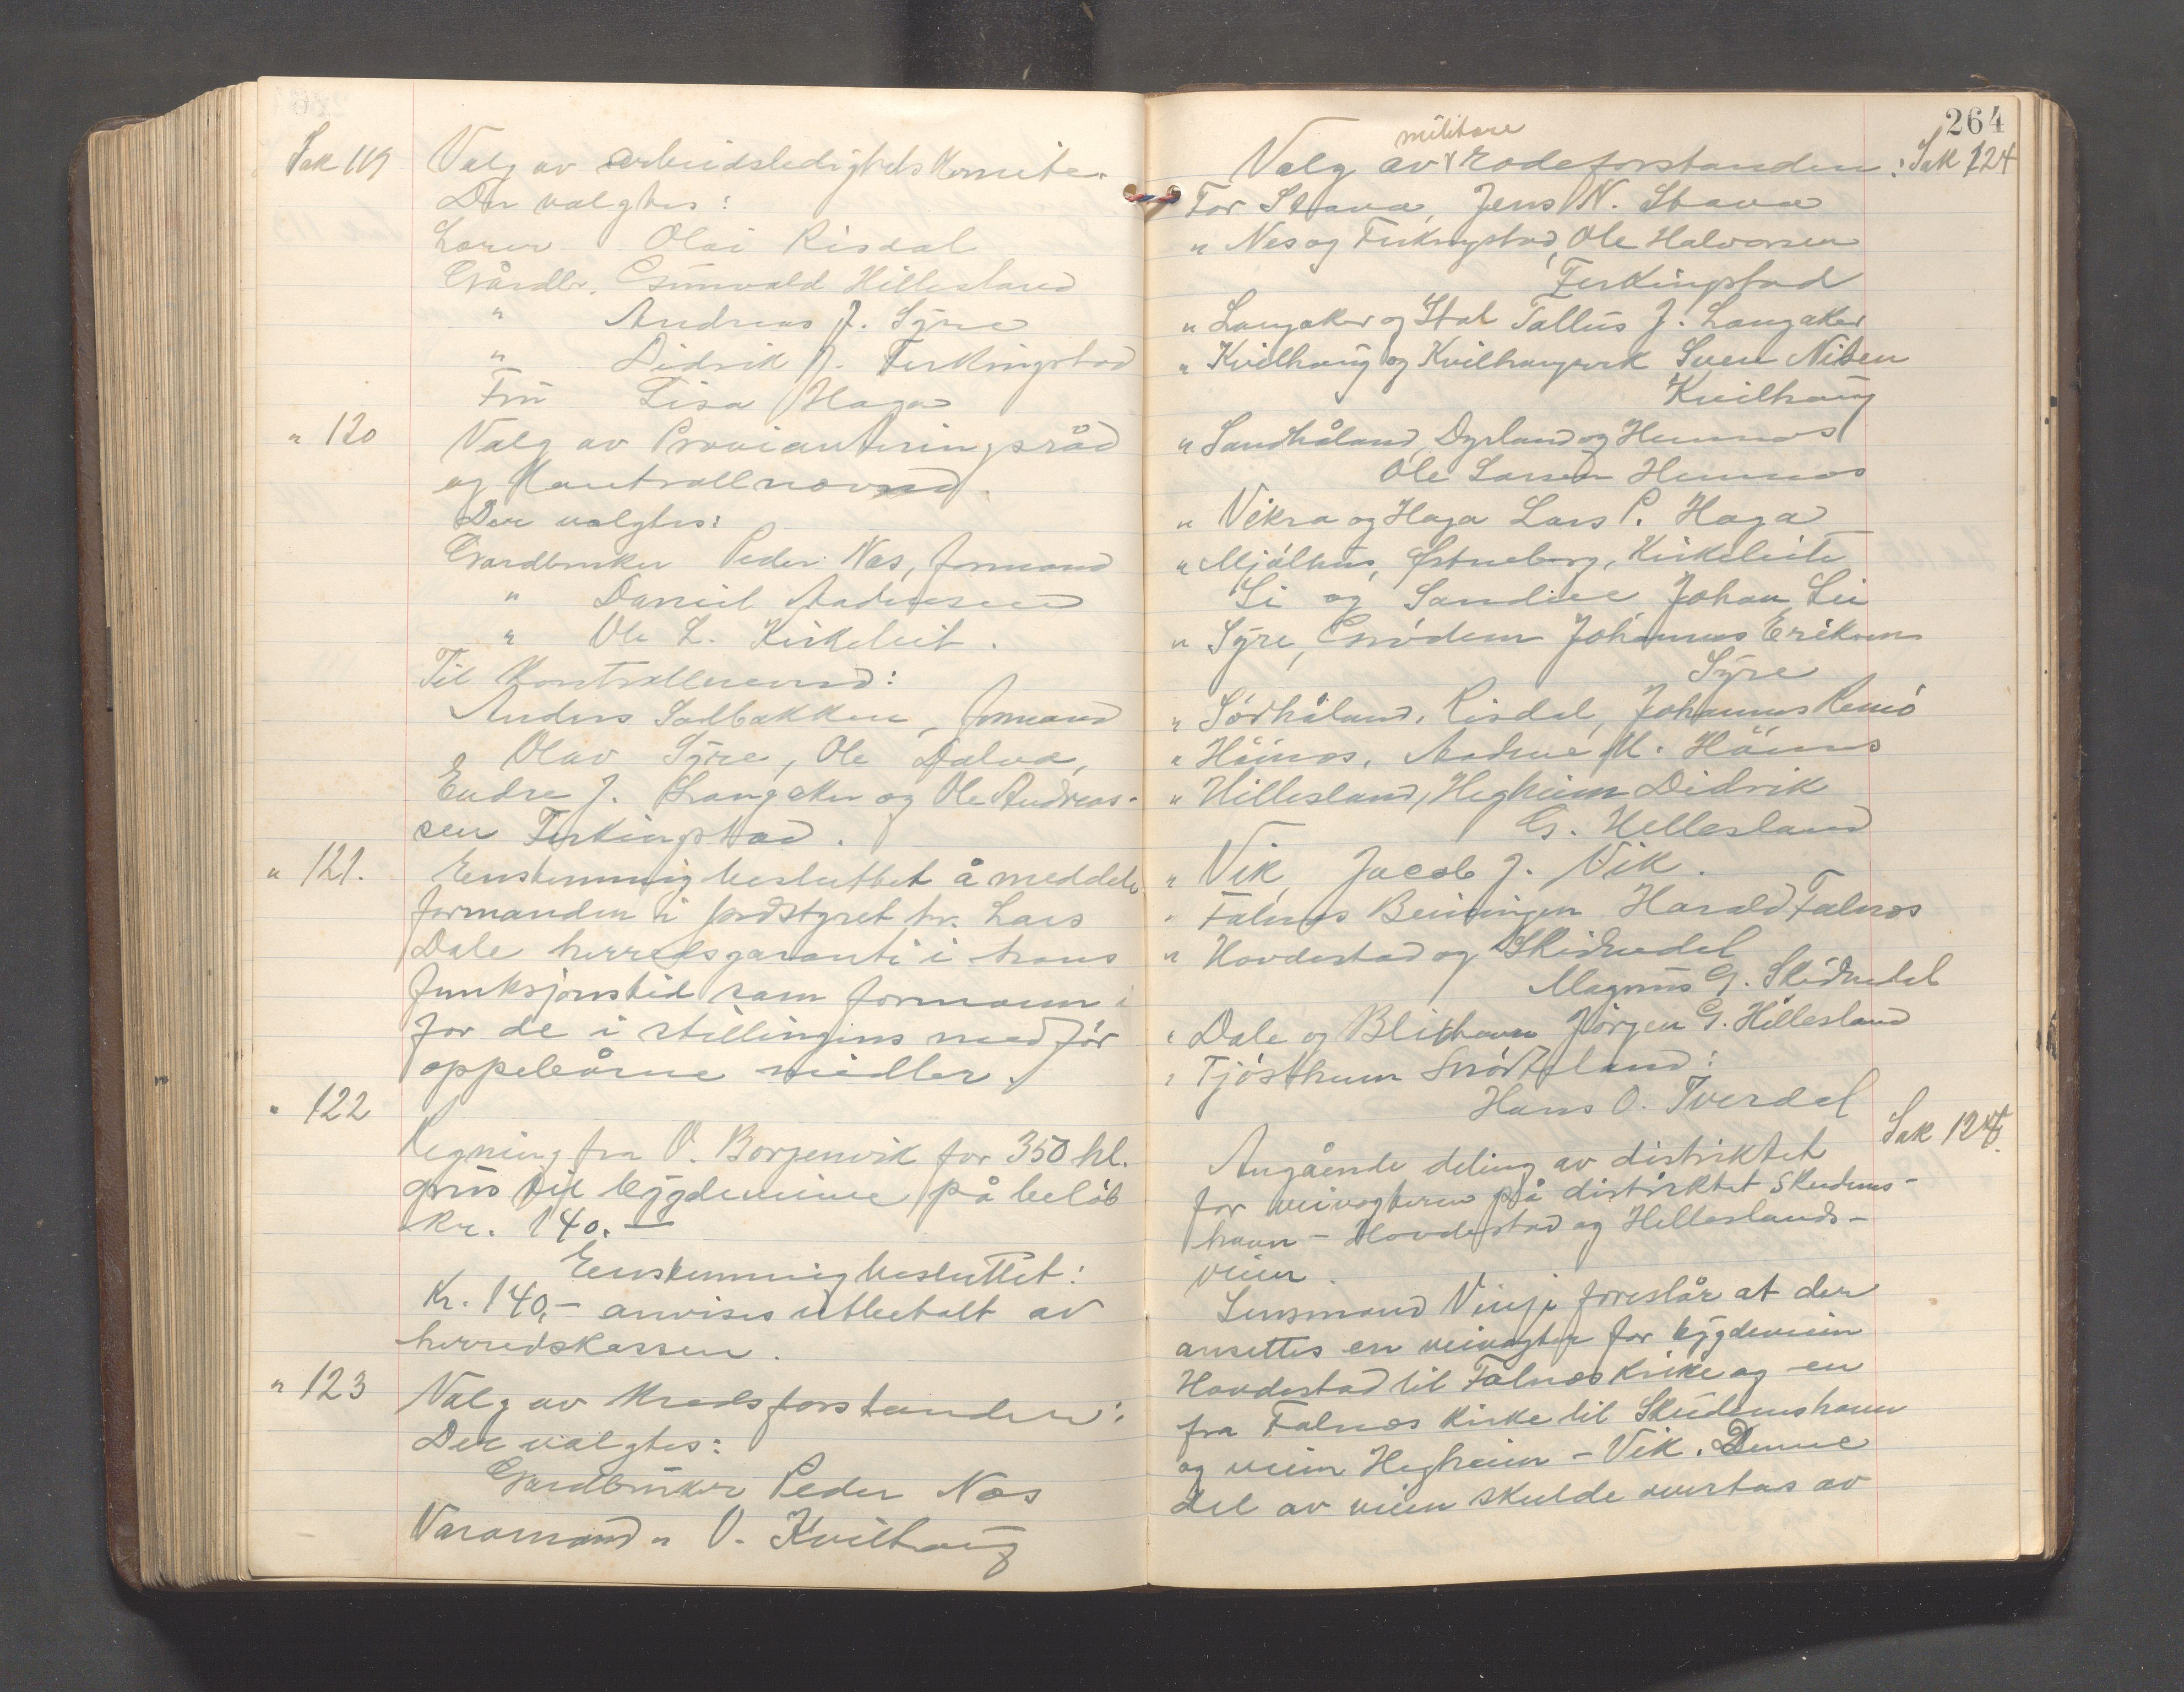 Sak 119 Valg av arbeidsledighets Komite.
Der valgtes:
Lærer Olai Risdal
Gårdbr. Gunvald Hillesland
" Andreas J. Syre
" Didrik A. Ferkingstad
Fru Lisa Haga
" 120 Valg av Provianteringsråd
og Kontrollnævnd.
Der valgtes:
Gardbruker Peder Nes, formand
" Daniel Andreassen
" Ole L. Kirkeleit.
Til Kontrollnevnd:
Anders Solbakken, formand
Olav Syre, Ole Dalva,
Endre J. Langaker og Ole Andreas-
sen Ferkingstad.
" 121. Enstemmig besluttet å meddele
formanden i jordstyret hr. Lars
Dale herredsgaranti i hans
funksjonstid som formann i
for de i stillingens medfør
oppebårne midler.
" 122
Regning fra O. Borgenvik for 350 hl.
grus til bygdeveiene på beløb
kr. 140.—
Enstemmig besluttet:
Kr. 140,- anvises utbetalt av
herredskassen.
" 123 Valg av Kredsforstander:
Der valgtes:
Gardbruker Peder Nes
Varamand " O. Kvilhaug
264
militære
Valg av rodeforstanden: Sak 124
For Stava, Jens N. Stava
" Nes og Ferkingstad, Ole Halvorsen
Ferkingstad
" Langaker og Stol Tallus J. Langaker
" Kvilhaug og Kvilhaugvik Sven Nilsen
Kvilhaug
" Sandhåland, Dyrland og Hemnes
Ole Larsen Hemnes
" Vikra og Haga Lars P. Haga
" Mjølhus, Østneberg, Kirkeleite
Li og Sandve Johan Lie
" Syre, Grødem Johannes Eriksen
Syre
" Sørhåland, Risdal, Johannes Remø
" Høines, Andreas M. Høines
" Hillesland, Hegheim Didrik
G. Hellesland
" Vik, Jacob J. Vik.
" Falnes Beiningen Harald Falnes
" Hovdestad og Skeidnedal
Magnus G. Skeidnedal
" Dale og Blikhavn Jørgen G. Hillesland
" Tjøsthem Snørteland:
Hans O. Tverdal
Sak 124.
Angående deling av distriktet
for veivogteren på distriktet Skudenes-
havn - Hovdestad og Helleslands-
veien.
Lensmand Vinje foreslår at der
ansettes en veivogter for bygdeveien
Hovdestad til Falnes Kirke og en
fra Falnes Kirke til Skudeneshavn
og veien Hegheim - Vik. Denne
del av veien skulde overtas av